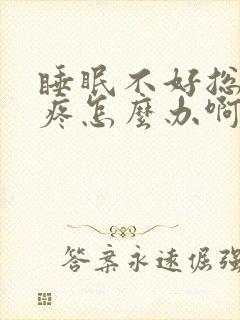 睡眠不好总
疼怎麽办啊
答案永远倔强